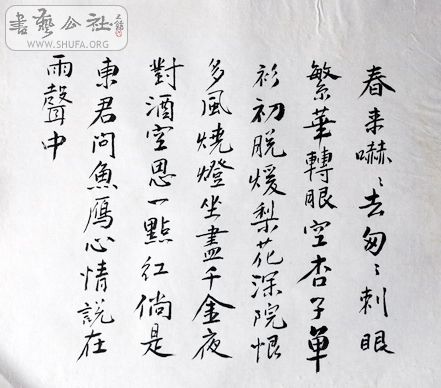 春来嚇〻去匆〻刺眼
繁華轉眼空杏子單
衫初脱煖梨花深院恨
多風燒燈坐盡千金夜
對酒空思一點紅倘是
東君問魚鴈心情説在
雨聲中
書藝公社
WWW.SHUFA.ORG